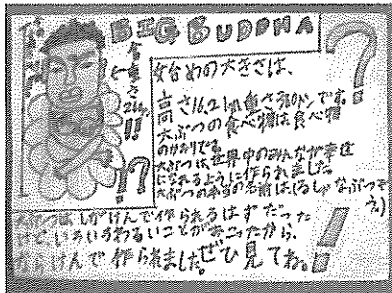 BIG BUDDHA
始めの大きさは、
高さ16.21m重さ です。
大ぶつの食べ物は食べ物
のかおりです。
大ぶつは世界中のみんなが幸せ
になれるように作られました
大ぶつの本当の名前は(るしゃなぶつぞ
う)
しがけんで作られるはずだった
けどいろいろわるいことがおこったから、
ならけんで作られました。ぜひ見てね。
!!
!?
?
!